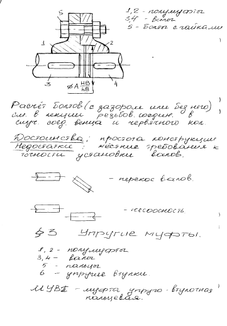 1, 2 - полумуфты
3,4 - валы
5 - болты с гайками
5
1
2
3
4
Расчёт болтов (с зазором или без него)
см. в лекции резьбов. соедин. в
случ. соед. венца и червячного кол.
Достоинства: простота конструкции
Недостатки: жёсткие требования к
точности установки валов.
- перекос валов.
- несоосность
§ 3 Упругие муфты.
1, 2 - полумуфты
3,4 - валы
5 - пальцы
6 - упругие втулки
МУВП - муфта упруго-втулочная
пальцевая.